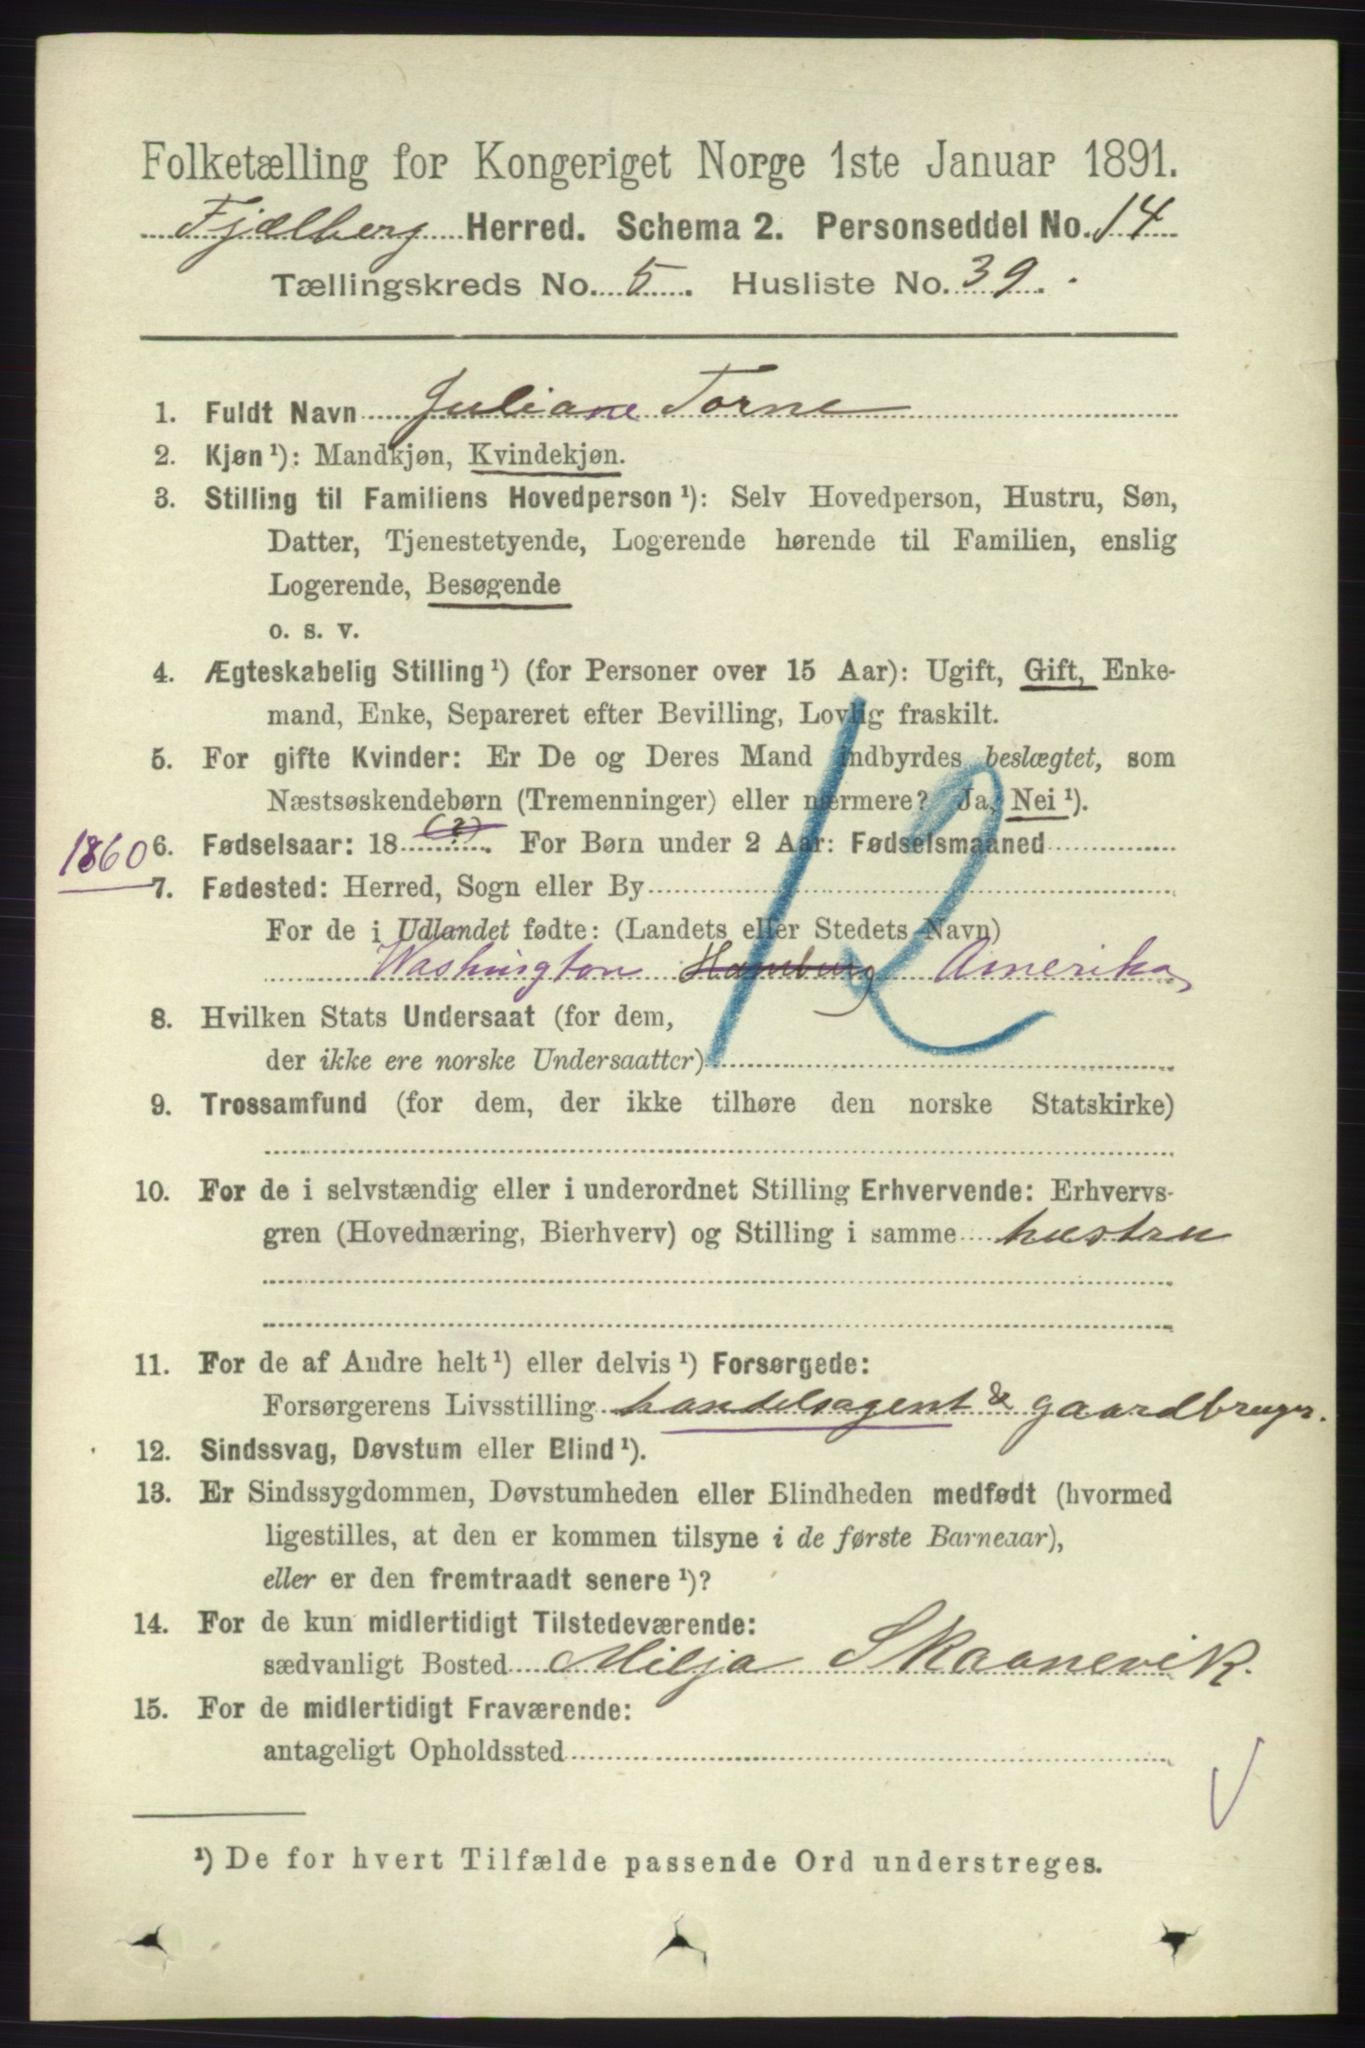 Folketælling for Kongeriget Norge 1ste Januar 1891.
Fjælberg Herred. Schema 2. Personseddel No. 14
Tællingskreds No. 5. Husliste No. 39.
1. Fuldt Navn Juliane Torne
2. Kjøn ¹): Mandkjøn, Kvindekjøn.
3. Stilling til Familiens Hovedperson ¹): Selv Hovedperson, Hustru, Søn,
Datter, Tjenestetyende, Logerende hørende til Familien, enslig
Logerende, Besøgende
o. s. v.
4. Ægteskabelig Stilling ¹) (for Personer over 15 Aar): Ugift, Gift, Enke-
mand, Enke, Separeret efter Bevilling, Lovlig fraskilt.
5. For gifte Kvinder: Er De og Deres Mand indbyrdes beslægtet, som
Næstsøskendebørn (Tremenninger) eller nærmere? Ja, Nei ¹).
12
1860 6. Fødselsaar: 18 (?). For Børn under 2 Aar: Fødselsmaaned
7. Fødested: Herred, Sogn eller By
For de i Udlandet fødte: (Landets eller Stedets Navn)
Washington Hamburg Amerika
8. Hvilken Stats Undersaat (for dem,
der ikke ere norske Undersaatter)
9. Trossamfund (for dem, der ikke tilhøre den norske Statskirke)
10. For de i selvstændig eller i underordnet Stilling Erhvervende: Erhvervs-
gren (Hovednæring, Bierhverv) og Stilling i samme hustru
11. For de af Andre helt ¹) eller delvis ¹) Forsørgede:
Forsørgerens Livsstilling handelsagent & gaardbruger.
12. Sindssvag, Døvstum eller Blind ¹).
13. Er Sindssygdommen, Døvstumheden eller Blindheden medfødt (hvormed
ligestilles, at den er kommen tilsyne i de første Barneaar),
eller er den fremtraadt senere ¹)?
14. For de kun midlertidigt Tilstedeværende:
sædvanligt Bosted Milja Skaanevik.
15. For de midlertidigt Fraværende:
antageligt Opholdssted
¹) De for hvert Tilfælde passende Ord understreges.